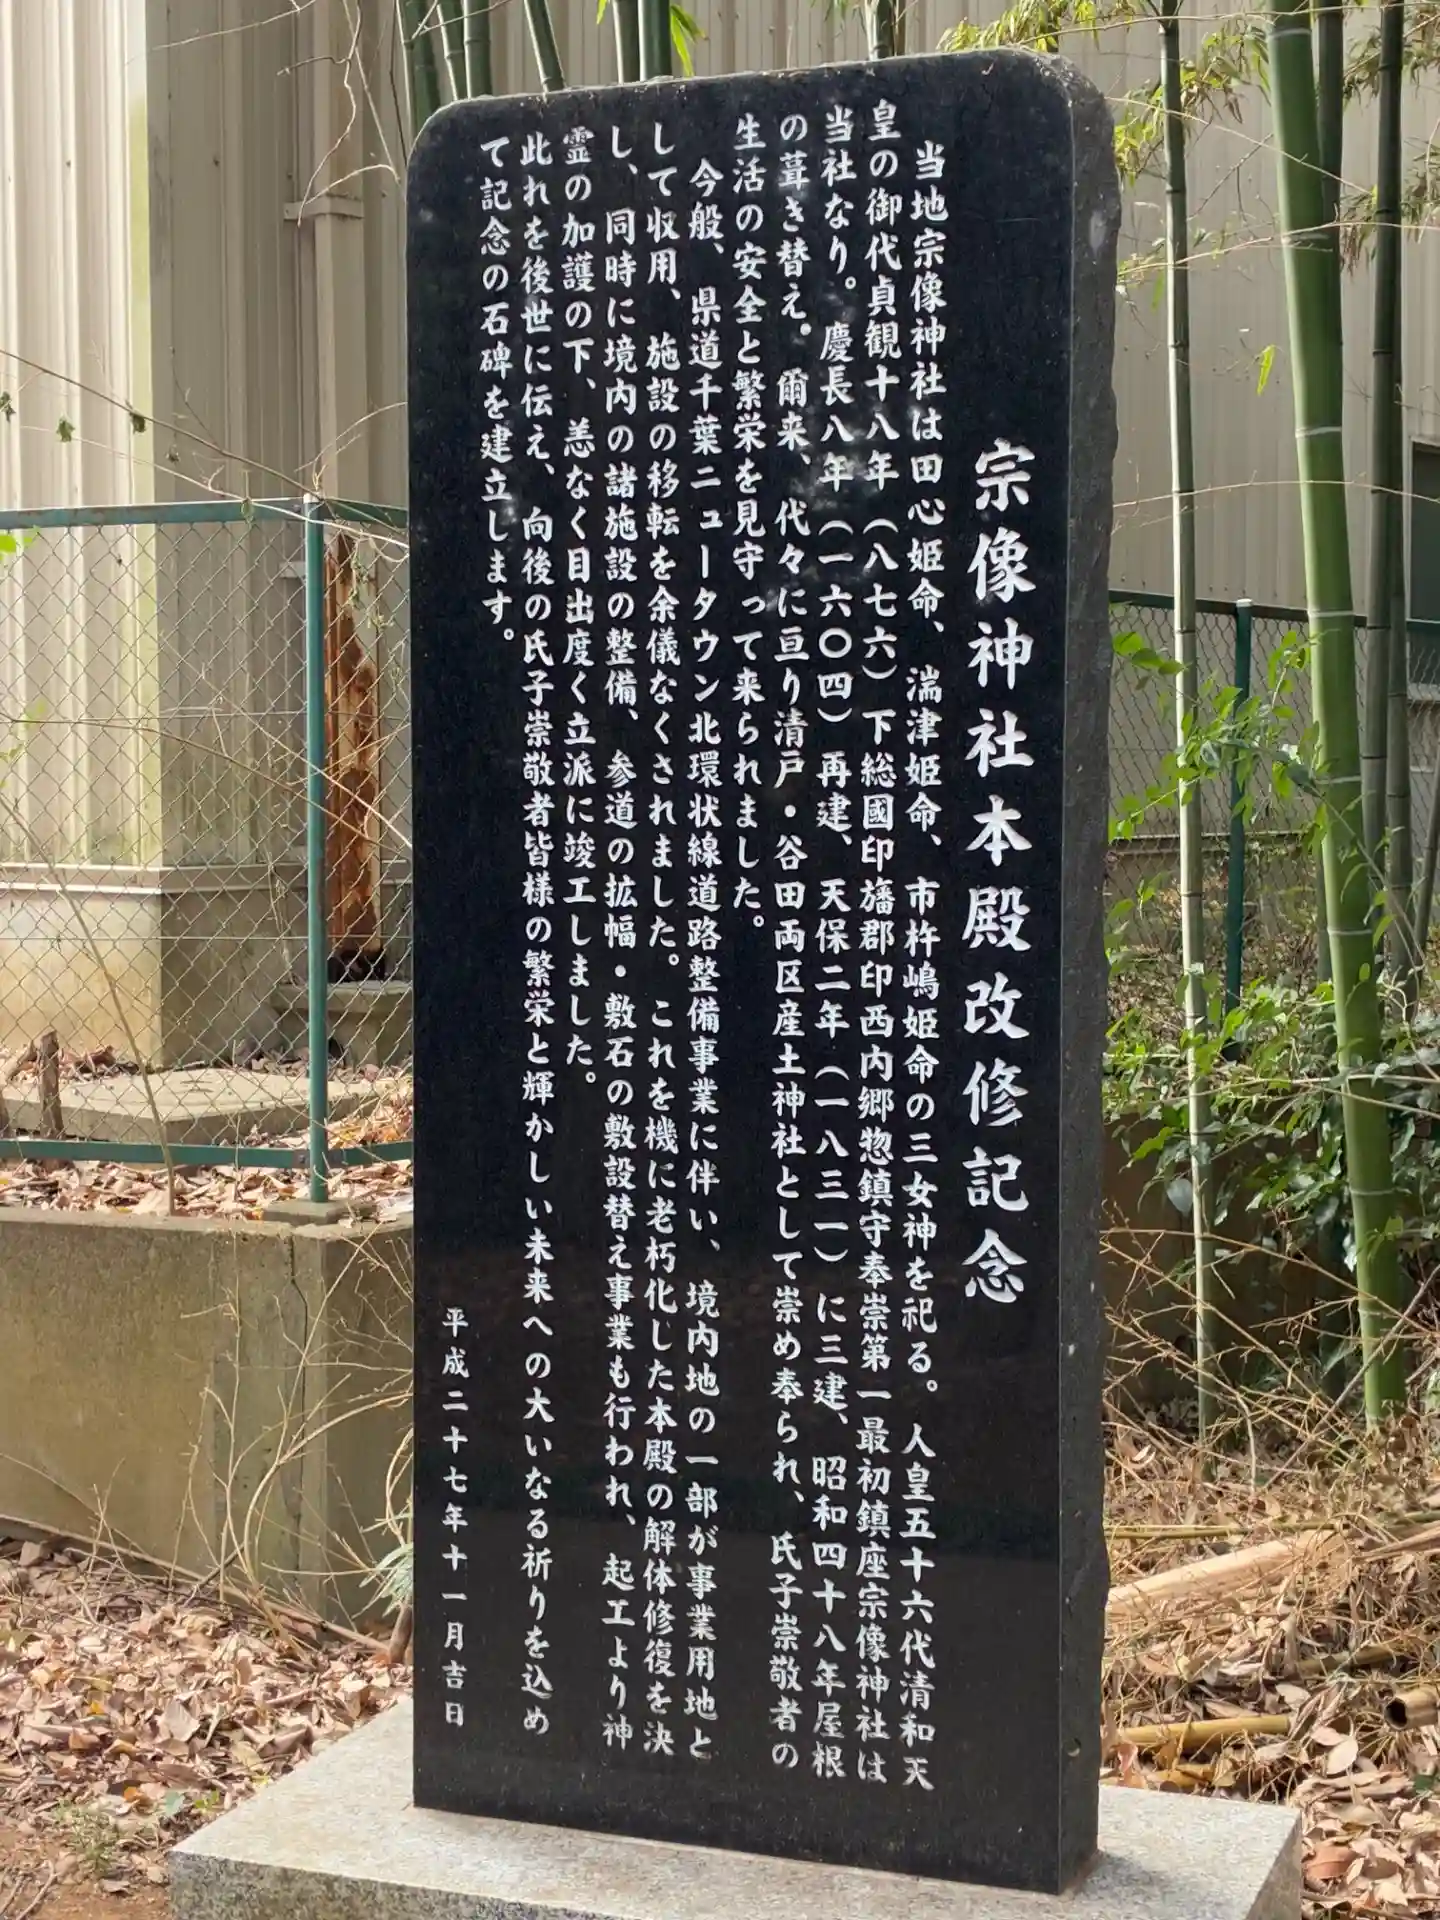 宗像神社本殿改修記念
当地宗像神社は田心姫命、湍津姫命、市杵嶋姫命の三女神を祀る。人皇五十六代清和天
皇の御代貞観十八年（八七六）下総國印旛郡印西内郷惣鎮守奉崇第一最初鎮座宗像神社は
当社なり。慶長八年（一六〇四）再建、天保二年（一八三一）に三建、昭和四十八年屋根
の葺き替え。爾来、代々に亘り清戸・谷田両区産土神社として崇め奉られ、氏子崇敬者の
生活の安全と繁栄を見守って来られました。
今般、県道千葉ニュータウン北環状線道路整備事業に伴い、境内地の一部が事業用地と
して収用、施設の移転を余儀なくされました。これを機に老朽化した本殿の解体修復を決
し、同時に境内の諸施設の整備、参道の拡幅・敷石の敷設替え事業も行われ、起工より神
霊の加護の下、恙なく目出度く立派に竣工しました。
此れを後世に伝え、向後の氏子崇敬者皆様の繁栄と輝かしい未来への大いなる祈りを込め
て記念の石碑を建立します。
平成二十七年十一月吉日